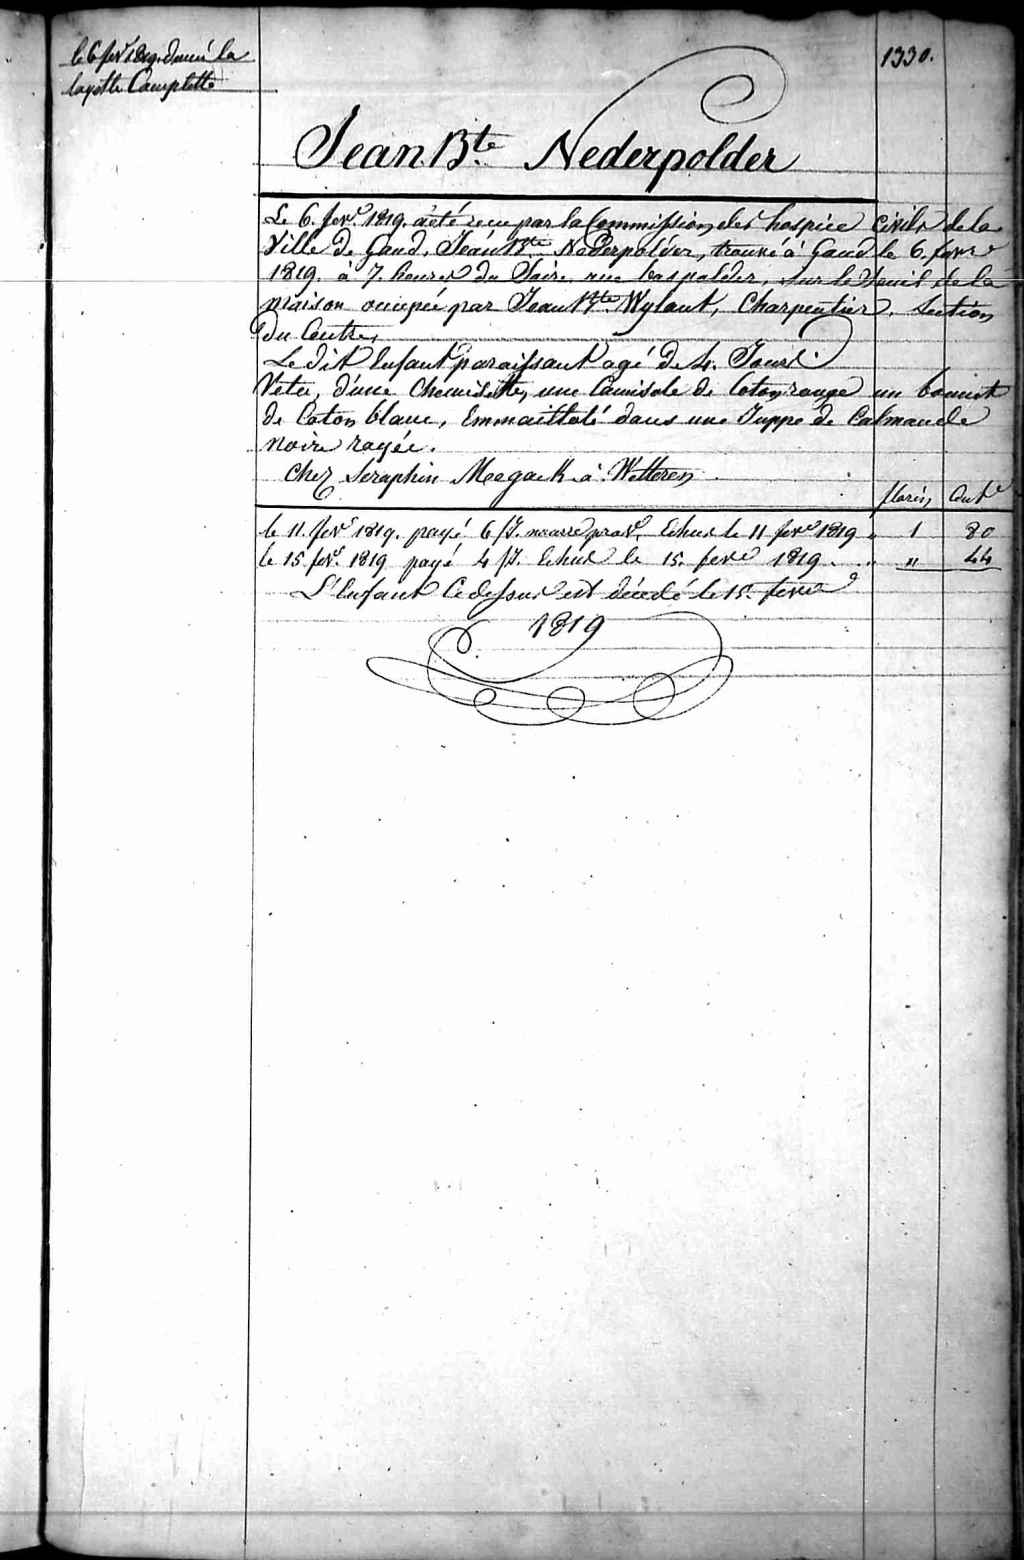 le 6 fevr. 1819. donné la
layette Complette
1330.
Jean Bte. Nederpolder
Le 6. fevr. 1819. a été recu par la Commission des hospice Civils de la
Ville de Gand, Jean Bte. Nederpolder, trouvé à Gand le 6. fevre
1819. à 7. heures du Soir, rue baspolder, Sur le Seuil de la
maison occupée par Jean Bte. Wylant, Charpentier, Section
du Centre,
Le dit Enfant paraissant agé de 4. Jours.
Vetu, d'une Chemisette, une Camisole de Coton rouge un bonnet
de Coton blanc, Emmailloté dans une Juppe de Calmande
noire rayée.
Chez Seraphin à Wetteren
florins, Cents
le 11. fevr. 1819. payé 6 Echus le 11 fevr. 1819 " 1 80
le 15. fevr. 1819 payé 4 Echus le 15. fevre 1819. . " " 44
L'Enfant Cidessus est décedé le 15. fevre
1819